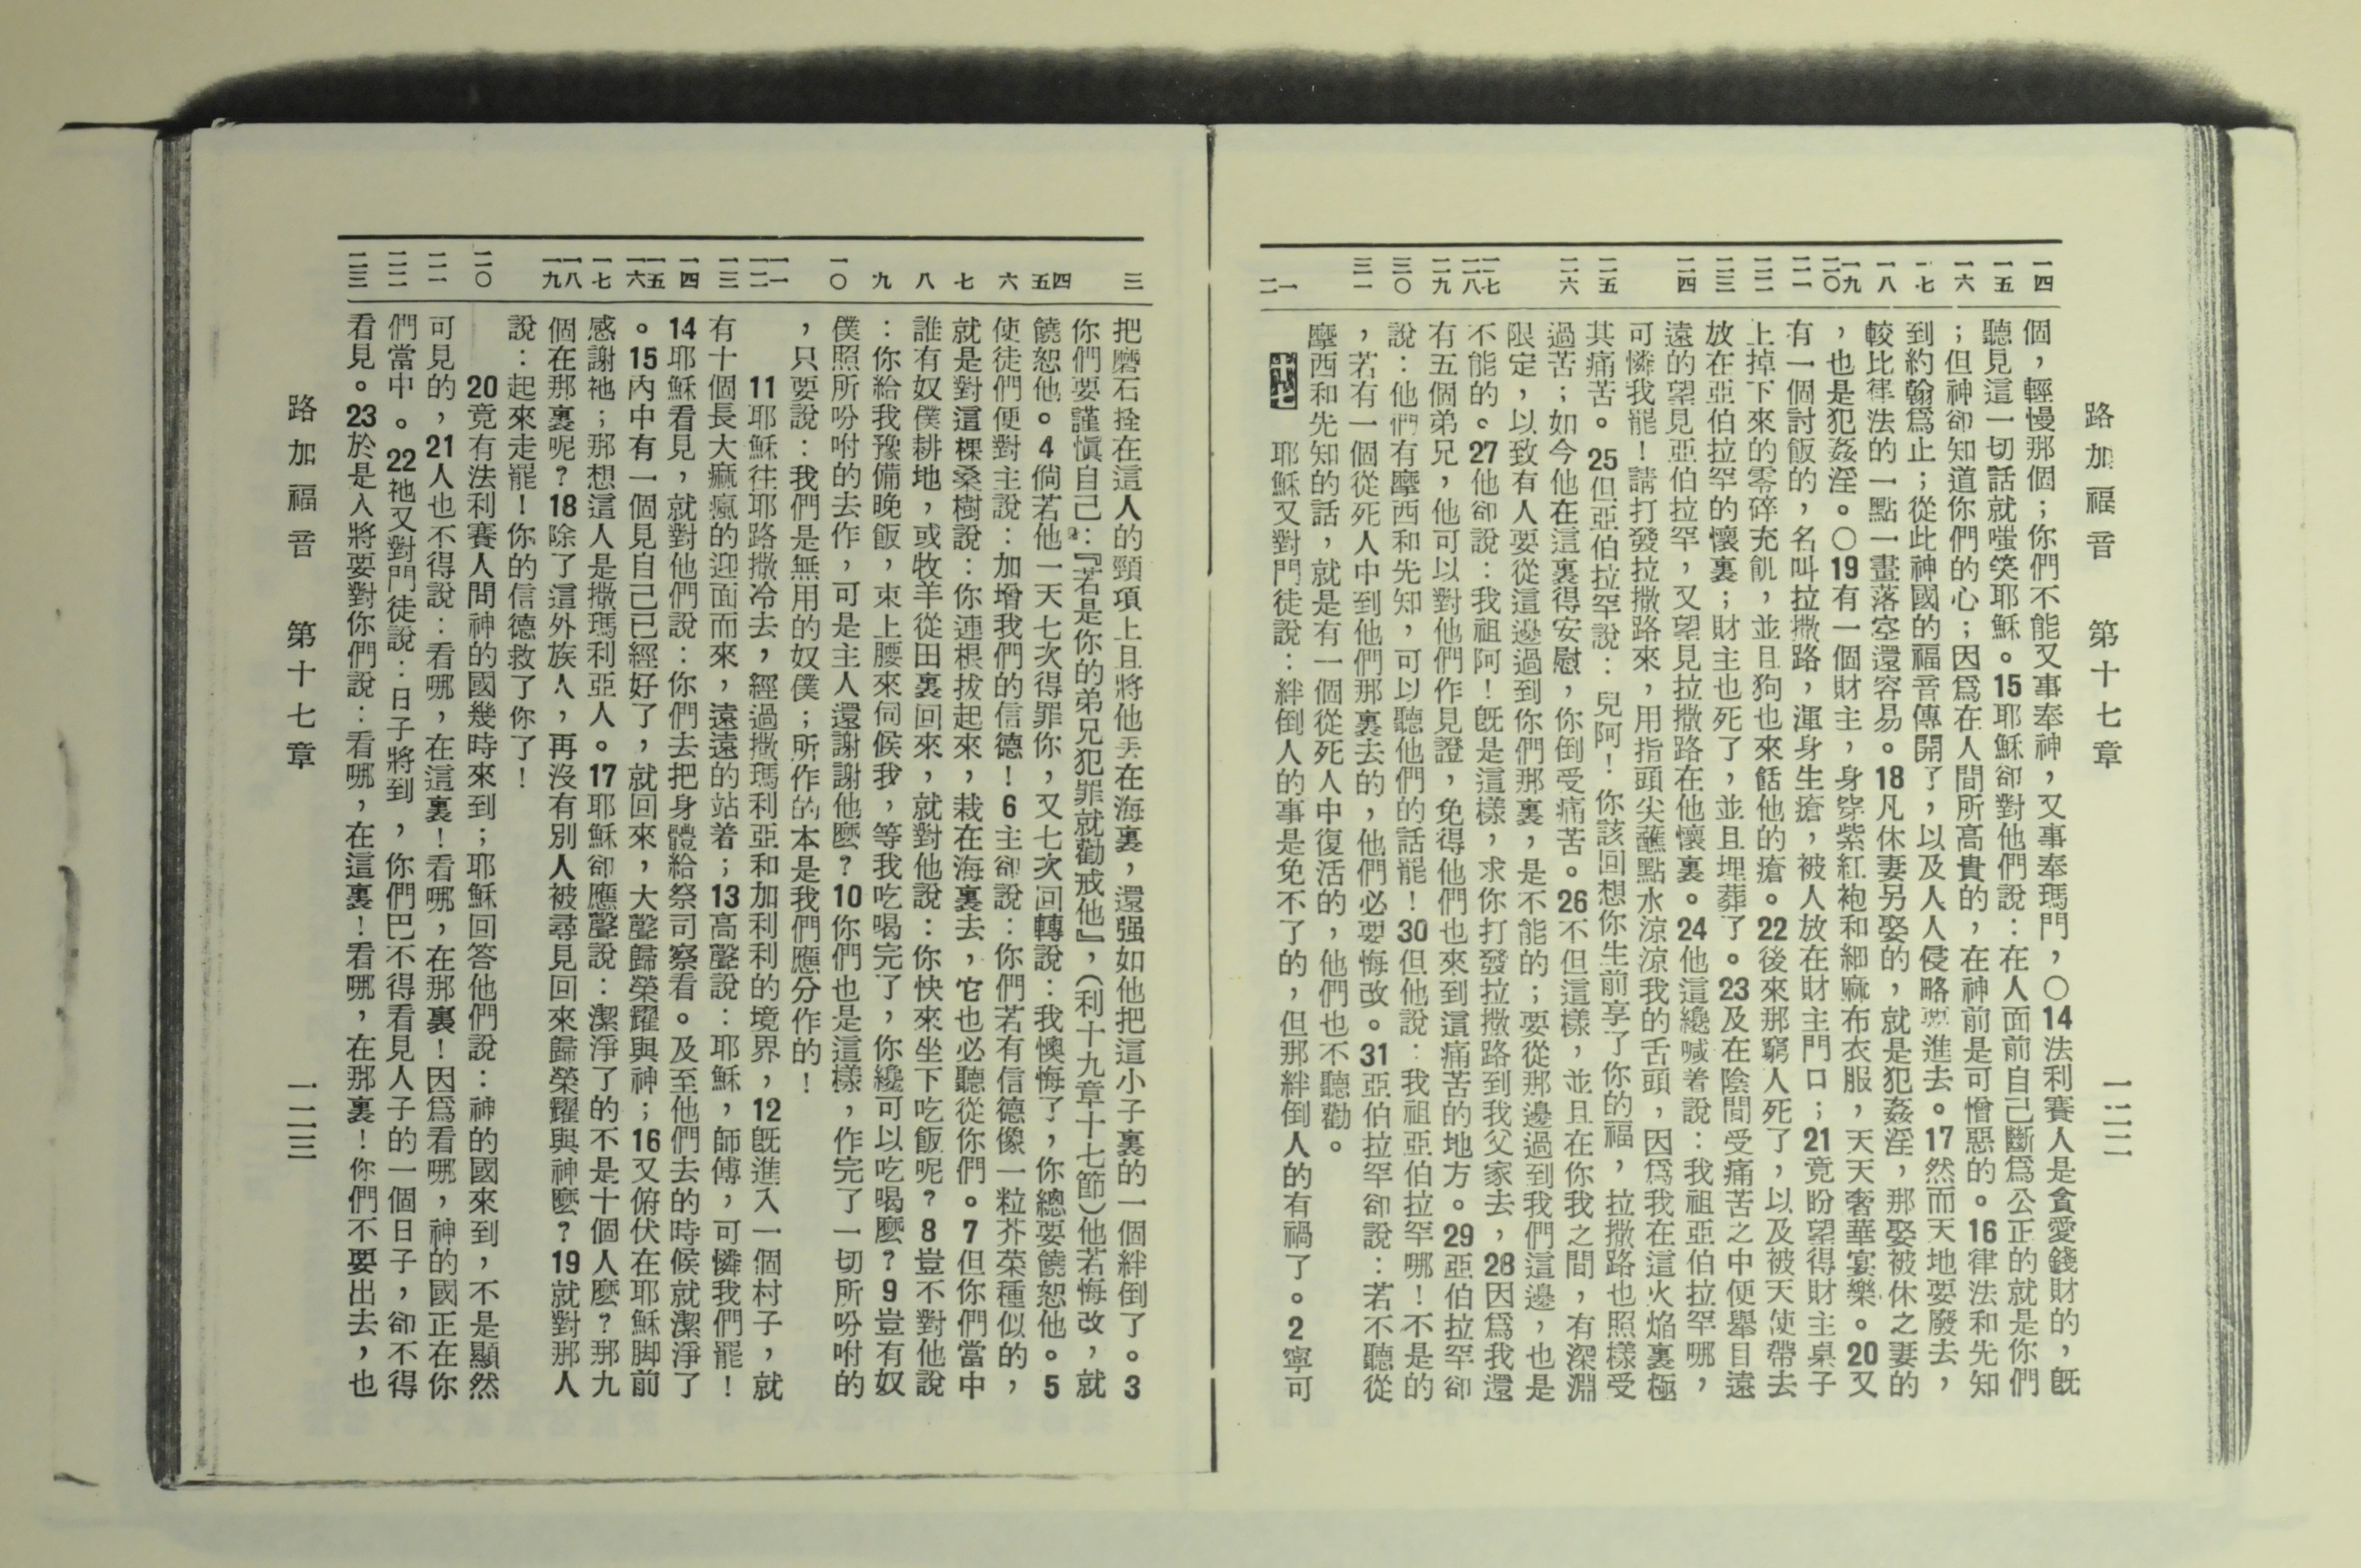 路加福音　第十七章　一二二
一四　一五　一六　一七　一八　一九　二〇　二一　二二　二三　二四　二五　二六　二七　二八　二九　三〇　三一　一　二
個，輕慢那個；你們不能又事奉神，又事奉瑪門，〇14法利賽人是貪愛錢財的，既
聽見這一切話就嗤笑耶穌。15耶穌卻對他們說：在人面前自己斷爲公正的就是你們
；但神卻知道你們的心；因爲在人間所高貴的，在神前是可憎惡的。16律法和先知
到約翰爲止；從此神國的福音傳開了，以及人人侵略要進去。17然而天地要廢去，
較比律法的一點一畫落空還容易。18凡休妻另娶的，就是犯姦淫，那娶被休之妻的
，也是犯姦淫。〇19有一個財主，身穿紫紅袍和細麻布衣服，天天奢華宴樂。20又
有一個討飯的，名叫拉撒路，渾身生瘡，被人放在財主門口；21竟盼望得財主桌子
上掉下來的零碎充飢，並且狗也來餂他的瘡。22後來那窮人死了，以及被天使帶去
放在亞伯拉罕的懷裏；財主也死了，並且埋葬了。23及在陰間受痛苦之中便舉目遠
遠的望見亞伯拉罕，又望見拉撒路在他懷裏。24他這纔喊着說：我祖亞伯拉罕哪，
可憐我罷！請打發拉撒路來，用指頭尖蘸點水涼涼我的舌頭，因爲我在這火焰裏極
其痛苦。25但亞伯拉罕說：兒阿！你該回想你生前享了你的福，拉撒路也照樣受
過苦；如今他在這裏得安慰，你倒受痛苦。26不但這樣，並且在你我之間，有深淵
限定，以致有人要從這邊過到你們那裏，是不能的；要從那邊過到我們這邊，也是
不能的。27他卻說：我祖阿！旣是這樣，求你打發拉撒路到我父家去，28因爲我還
有五個弟兄，他可以對他們作見證，免得他們也來到這痛苦的地方。29亞伯拉罕卻
說：他們有摩西和先知，可以聽他們的話罷！30但他說：我祖亞伯拉罕哪！不是的
，若有一個從死人中到他們那裏去的，他們必要悔改。31亞伯拉罕卻說：若不聽從
摩西和先知的話，就是有一個從死人中復活的，他們也不聽勸。
十七　耶穌又對門徒說：絆倒人的事是免不了的，但那絆倒人的有禍了。2寧可
三　四　五　六　七　八　九　一〇　一一　一二　一三　一四　一五　一六　一七　一八　一九　二〇　二一　二二　二三
把磨石拴在這人的頸項上且將他丟在海裏，還强如他把這小子裏的一個絆倒了。3
你們要謹愼自己：『若是你的弟兄犯罪就勸戒他』，（利十九章十七節）他若悔改，就
饒恕他。4倘若他一天七次得罪你，又七次回轉說：我懊悔了，你總要饒恕他。5
使徒們便對主說：加增我們的信德！6主卻說：你們若有信德像一粒芥菜種似的，
就是對這棵桑樹說：你連根拔起來，栽在海裏去，它也必聽從你們。7但你們當中
誰有奴僕耕地，或牧羊從田裏回來，就對他說：你快來坐下吃飯呢？8豈不對他說
：你給我豫備晚飯，束上腰來伺候我，等我吃喝完了，你纔可以吃喝麽？9豈有奴
僕照所吩咐的去作，可是主人還謝謝他麽？10你們也是這樣，作完了一切所吩咐的
，只要說：我們是無用的奴僕；所作的本是我們應分作的！
11耶穌往耶路撒冷去，經過撒瑪利亞和加利利的境界，12旣進入一個村子，就
有十個長大痲瘋的迎面而來，遠遠的站着；13高聲說：耶穌，師傅，可憐我們罷！
14耶穌看見，就對他們說：你們去把身體給祭司察看。及至他們去的時候就潔淨了
。15內中有一個見自己已經好了，就回來，大聲歸榮耀與神；16又俯伏在耶穌脚前
感謝祂；那想這人是撒瑪利亞人。17耶穌卻應聲說：潔淨了的不是十個人麽？那九
個在那裏呢？18除了這外族人，再沒有別人被尋見回來歸榮耀與神麽？19就對那人
說：起來走罷！你的信德救了你了！
20竟有法利賽人問神的國幾時來到；耶穌回答他們說：神的國來到，不是顯然
可見的，21人也不得說：看哪，在這裏！看哪，在那裏！因爲看哪，神的國正在你
們當中。22祂又對門徒說：日子將到，你們巴不得看見人子的一個日子，卻不得
看見。23於是人將要對你們說：看哪，在這裏！看哪，在那裏！你們不要出去，也
路加福音　第十七章　一二三